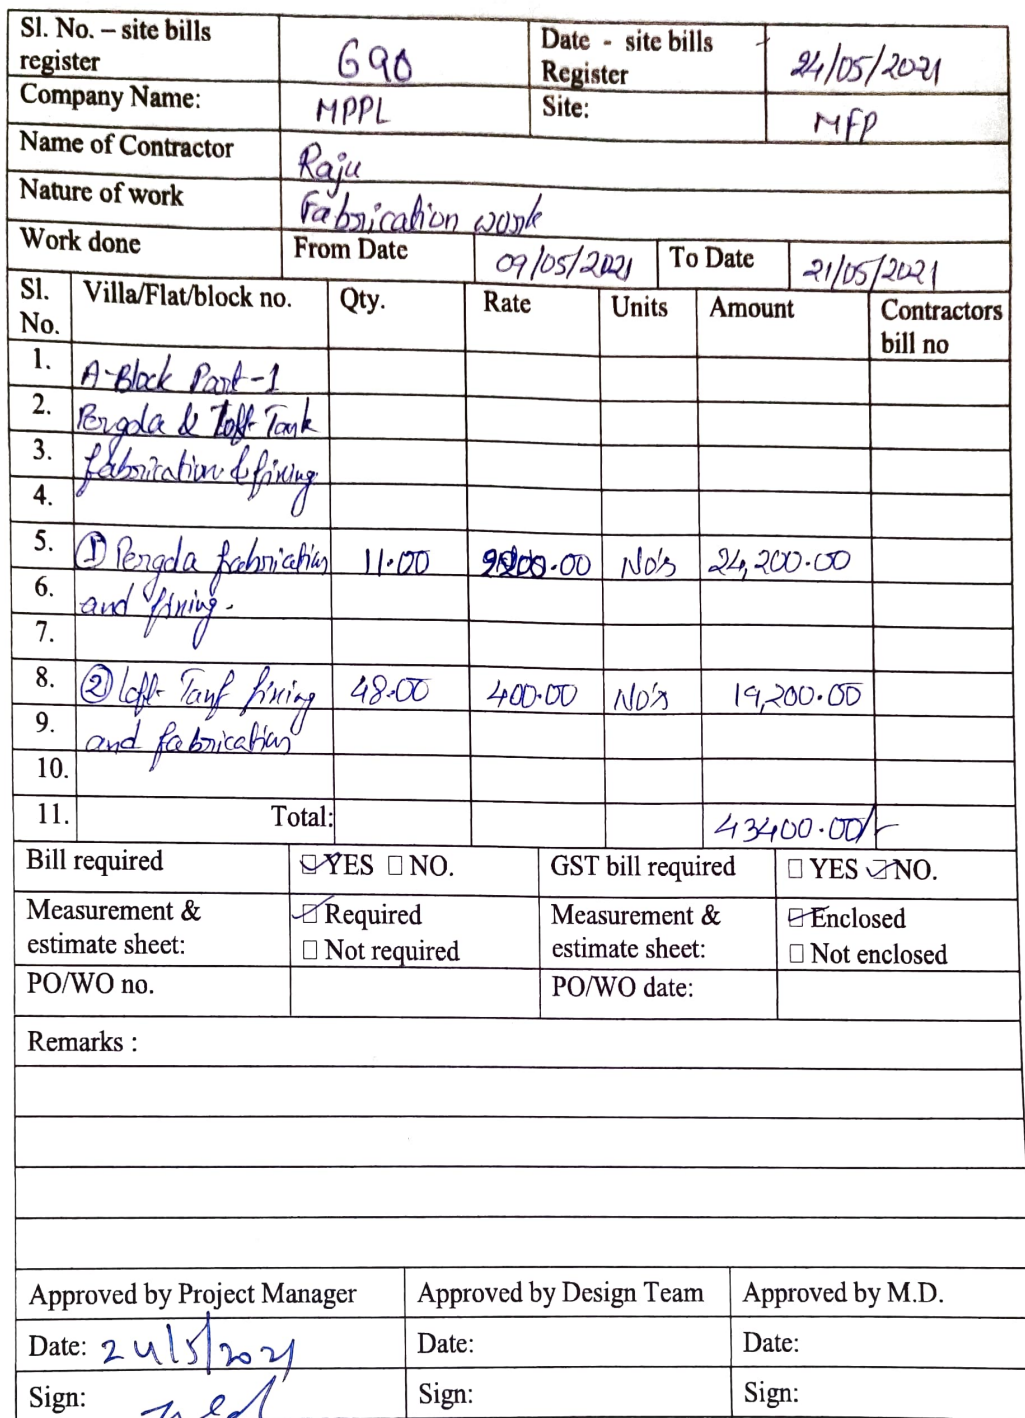 Sl. No. – site bills register 690 Date - site bills Register 24/05/2021
Company Name: MPPL Site: MFP
Name of Contractor Raju
Nature of work Fabrication work
Work done From Date 09/05/2021 To Date 21/05/2021
Sl. No. Villa/Flat/block no. Qty. Rate Units Amount Contractors bill no
1. A-Block Part-1
2. Pergola & Loft Tank
3. fabrication & fixing
4.
5. ① Pergola fabrication 11.00 2200.00 No's 24,200.00
6. and fixing.
7.
8. ② Loft Tank fixing 48.00 400.00 No's 19,200.00
9. and fabrication
10.
11. Total: 43400.00/-
Bill required YES NO. GST bill required YES NO.
Measurement & estimate sheet: Required Measurement & estimate sheet: Enclosed
Not required Not enclosed
PO/WO no. PO/WO date:
Remarks :
Approved by Project Manager Approved by Design Team Approved by M.D.
Date: 24/5/2021 Date: Date:
Sign: Sign: Sign: